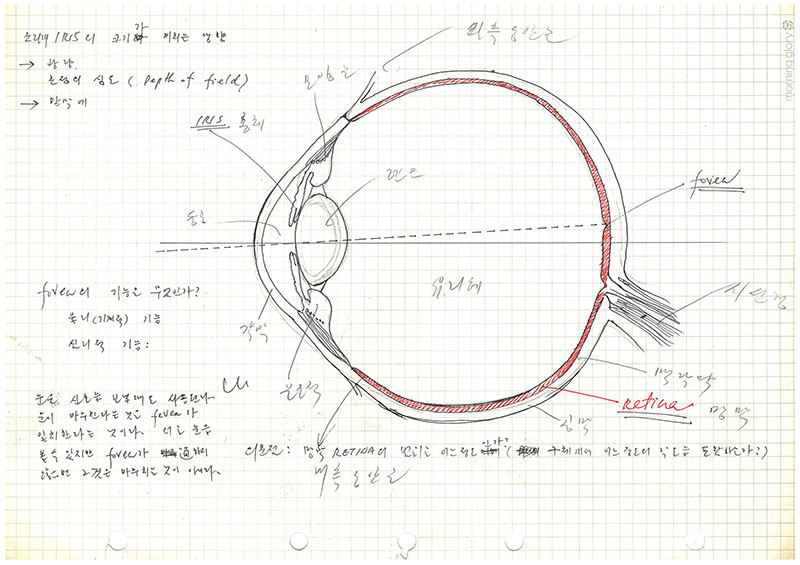 IRIS의 크기가 미치는 영향
→ 광량
초점의 심도 (Depth of field)
→ 망막에
외측 동안근
모양근
IRIS 홍채
렌즈
fovea
동공
유리체
시신경
fovea의 기능은 무엇인가?
물리(기계적) 기능
심리적 기능:
각막
맥락막
Retina 망막
공막
눈은 신호를 보낼때도 사용된다.
눈이 마주친다는 것은 fovea가
일치한다는 것이다. 다른 곳을
볼 수 있지만 fovea가
않으면 그것은 마주치는 것이 아니다.
의문점: 망막 RETINA의 범위는 어느정도인가? ( 구체에서 어느정도의 각도를 도달하는가?)
내측 동안근
morning glory